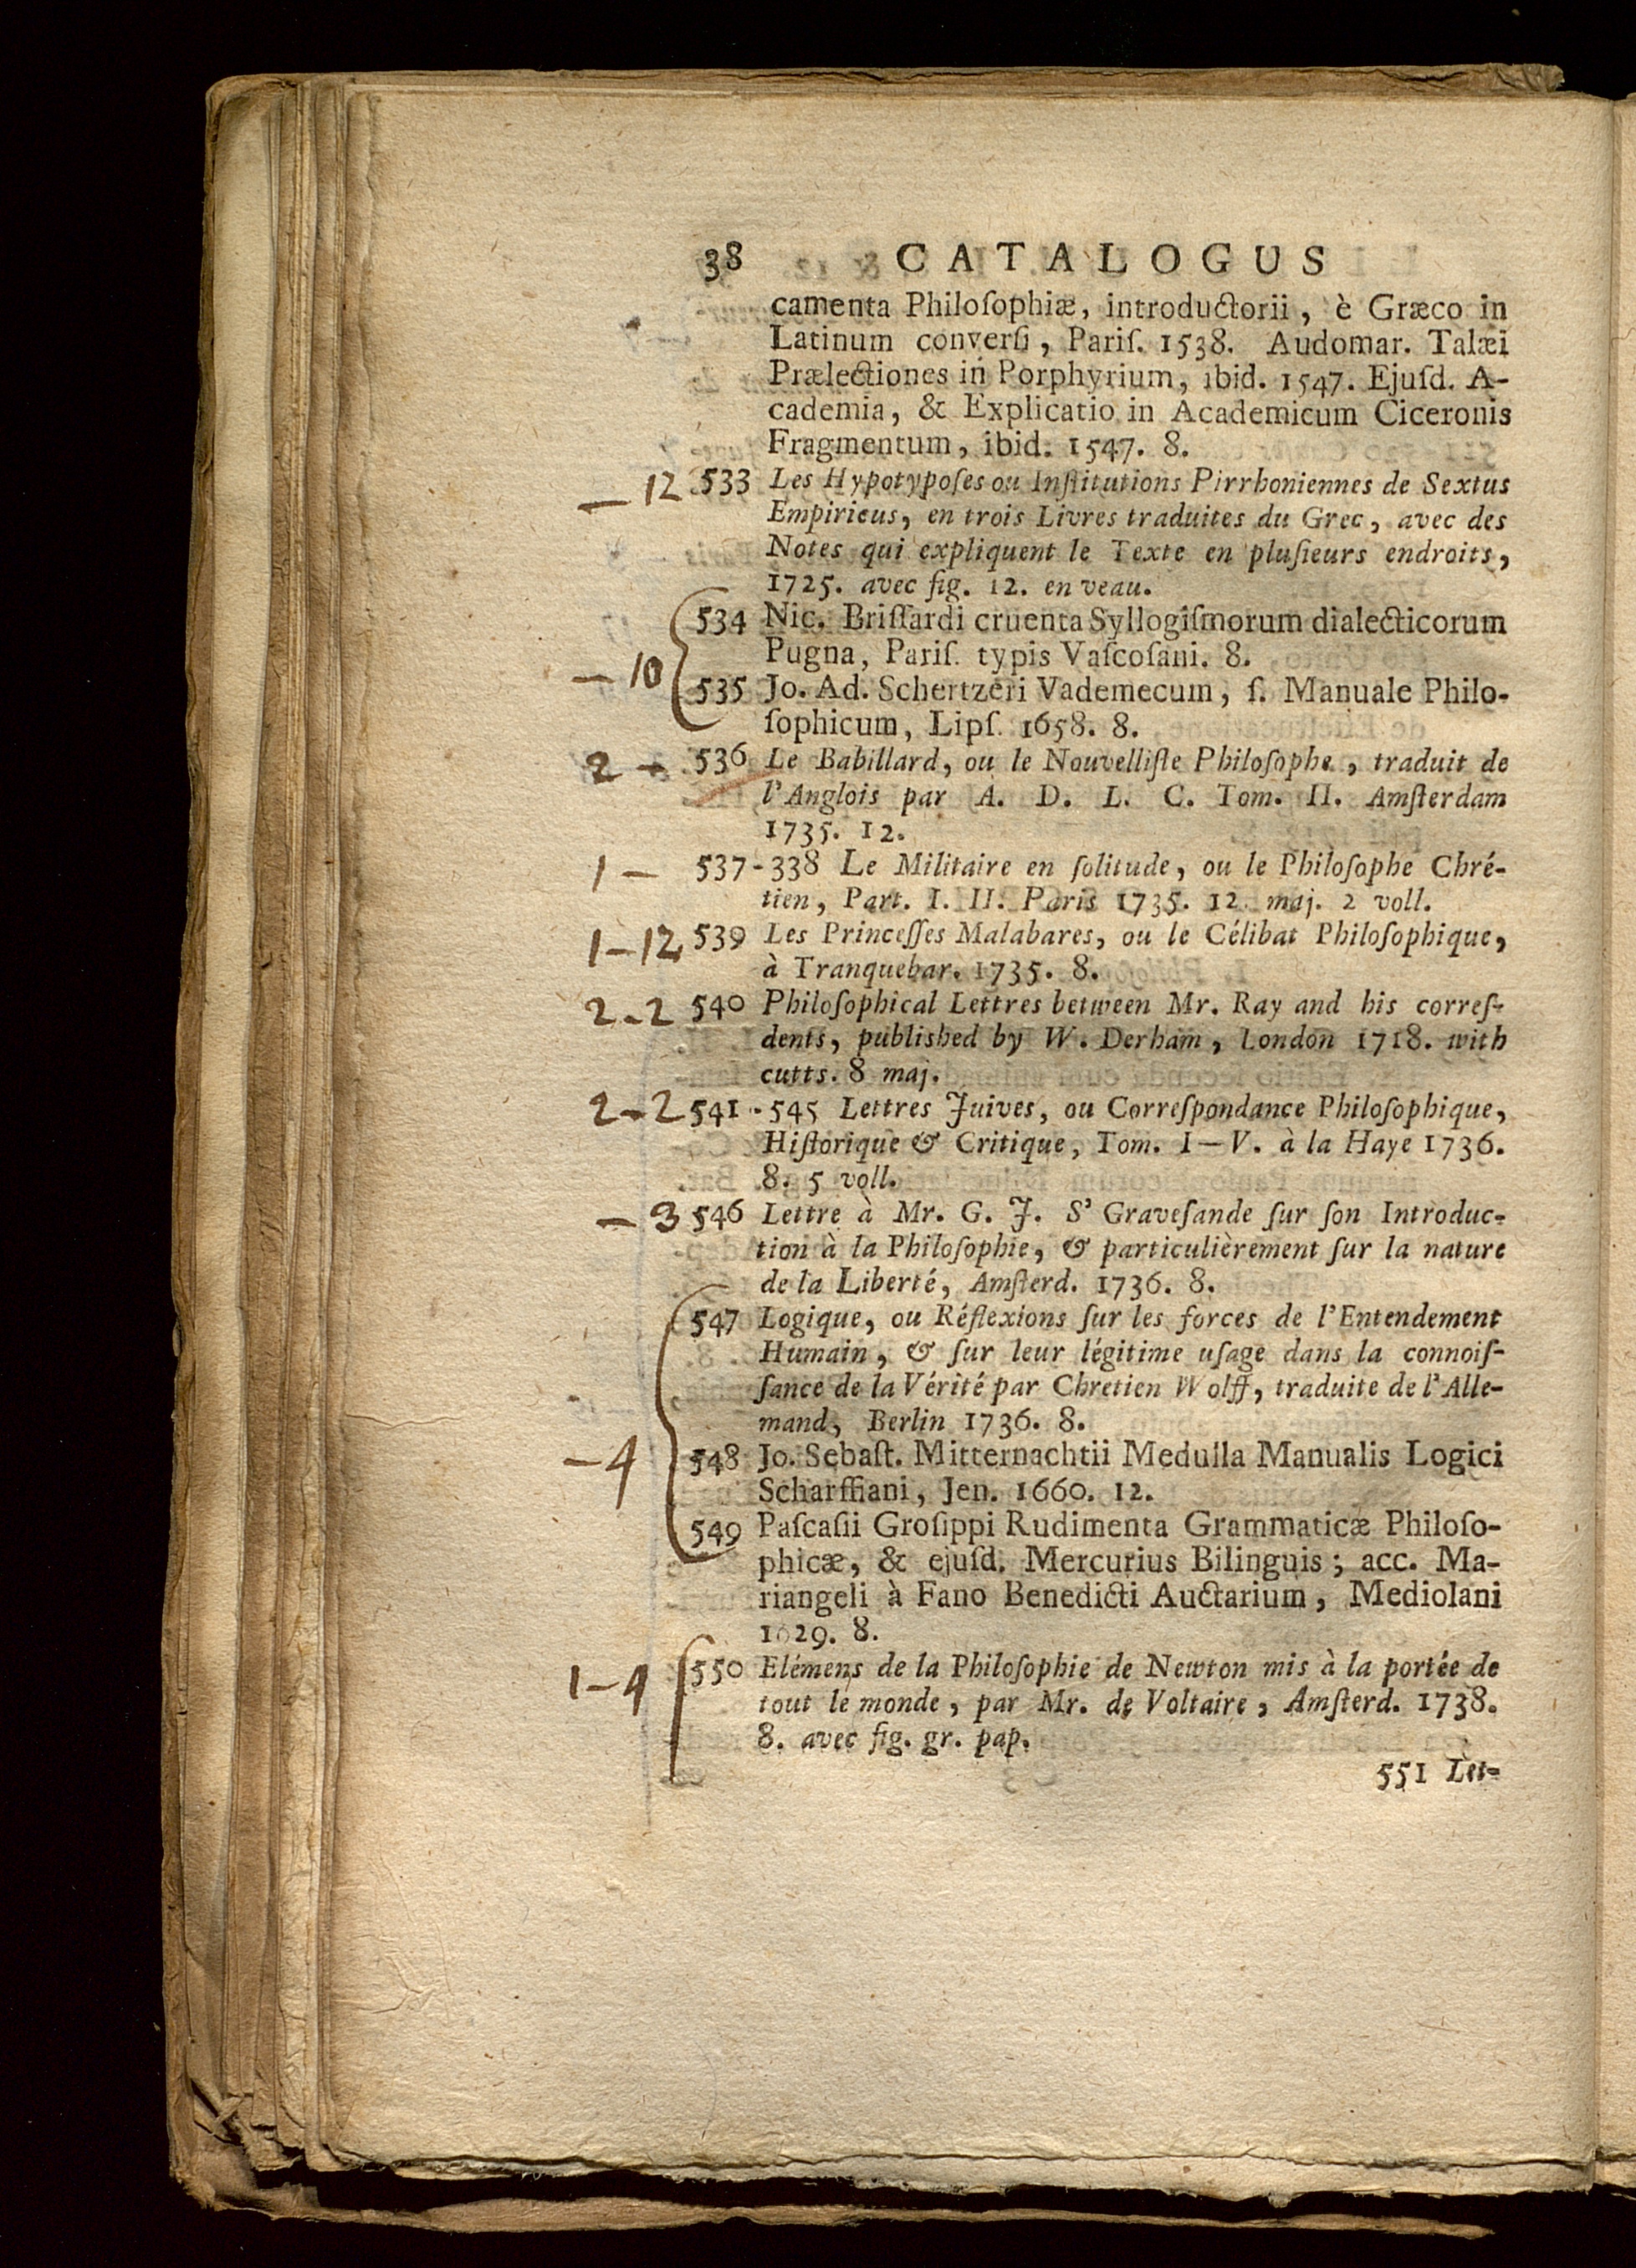 38 CATALOGUS
camenta Philoſophiæ, introductorii, è Græco in
Latinum converſi, Pariſ. 1538. Audomar. Talæi
Prælectiones in Porphyrium, ibid. 1547. Ejuſd. A-
cademia, & Explicatio in Academicum Ciceronis
Fragmentum, ibid. 1547. 8.
— 12 533 Les Hypotypoſes ou Inſtitutions Pirrhoniennes de Sextus
Empiricus, en trois Livres traduites du Grec, avec des
Notes qui expliquent le Texte en pluſieurs endroits,
1725. avec fig. 12. en veau.
534 Nic. Briſſardi cruenta Syllogiſmorum dialecticorum
Pugna, Pariſ. typis Vaſcoſani. 8.
— 10 535 Jo. Ad. Schertzeri Vademecum, ſ. Manuale Philo-
ſophicum, Lipſ. 1658. 8.
2 — 536 Le Babillard, ou le Nouvelliſte Philoſophe, traduit de
l'Anglois par A. D. L. C. Tom. II. Amſterdam
1735. 12.
1 — 537-338 Le Militaire en ſolitude, ou le Philoſophe Chré-
tien, Part. I. II. Paris 1735. 12. maj. 2 voll.
1-12 539 Les Princeſſes Malabares, ou le Célibat Philoſophique,
à Tranquebar. 1735. 8.
2-2 540 Philoſophical Lettres between Mr. Ray and his correſ-
dents, published by W. Derham, London 1718. with
cutts. 8 maj.
2-2 541-545 Lettres Juives, ou Correſpondance Philoſophique,
Hiſtorique & Critique, Tom. I—V. à la Haye 1736.
8. 5 voll.
— 3 546 Lettre à Mr. G. J. S' Graveſande ſur ſon Introduc-
tion à la Philoſophie, & particulièrement ſur la nature
de la Liberté, Amſterd. 1736. 8.
547 Logique, ou Réflexions ſur les forces de l'Entendement
Humain, & ſur leur légitime uſage dans la connoiſ-
ſance de la Vérité par Chretien Wolff, traduite de l'Alle-
mand, Berlin 1736. 8.
— 4 548 Jo. Sebaſt. Mitternachtii Medulla Manualis Logici
Scharffiani, Jen. 1660. 12.
549 Paſcaſii Groſippi Rudimenta Grammaticæ Philoſo-
phicæ, & ejuſd. Mercurius Bilinguis; acc. Ma-
riangeli à Fano Benedicti Auctarium, Mediolani
1629. 8.
1-4 550 Elémens de la Philoſophie de Newton mis à la portée de
tout le monde, par Mr. de Voltaire, Amſterd. 1738.
8. avec fig. gr. pap.
551 Let-